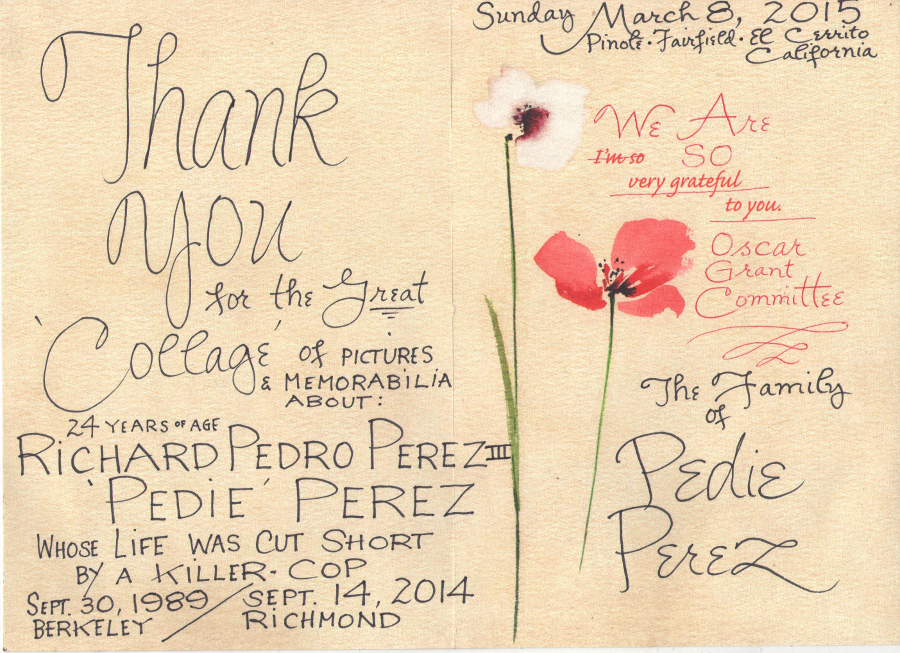 Thank
You
for the Great
'Collage' of PICTURES
& MEMORABILIA
ABOUT:
24 YEARS OF AGE
RICHARD PEDRO PEREZ III
'PEDIE' PEREZ
WHOSE LIFE WAS CUT SHORT
BY A KILLER-COP
SEPT. 30, 1989 / SEPT. 14, 2014
BERKELEY / RICHMOND
Sunday March 8, 2015
Pinole · Fairfield · El Cerrito
California
We Are
I'm so SO
very grateful
to you.
Oscar
Grant
Committee
The Family
of
Pedie
Perez